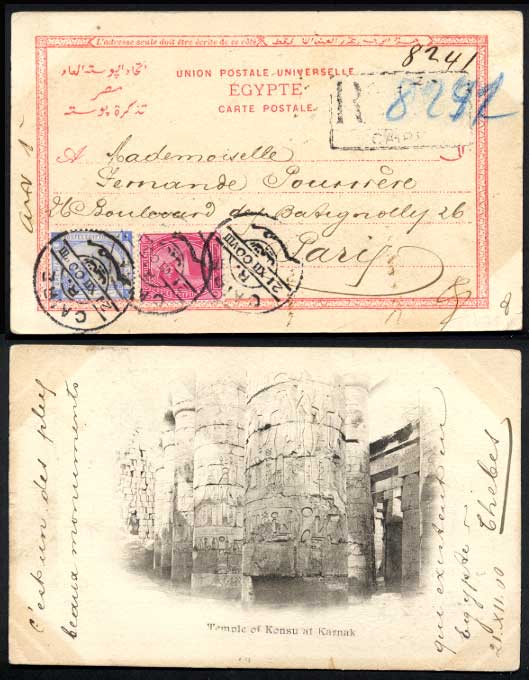 L'adresse seule doit être écrite de ce côté
8241
UNION POSTALE UNIVERSELLE
اتحاد البوسته العام
ÉGYPTE
مصر
CARTE POSTALE
تذكرة بوسته
R
8291
A
Mademoiselle
Fernande Poussrère
26 Boulevard des Batignolles 26
Paris
CAIRE
21 XII 00
CAIRE
21 XII 00 VIII
c'est un des plus
beaux monuments
qui existent en
Egypte -
Thebes
21.XII.00
Temple of Konsu at Karnak